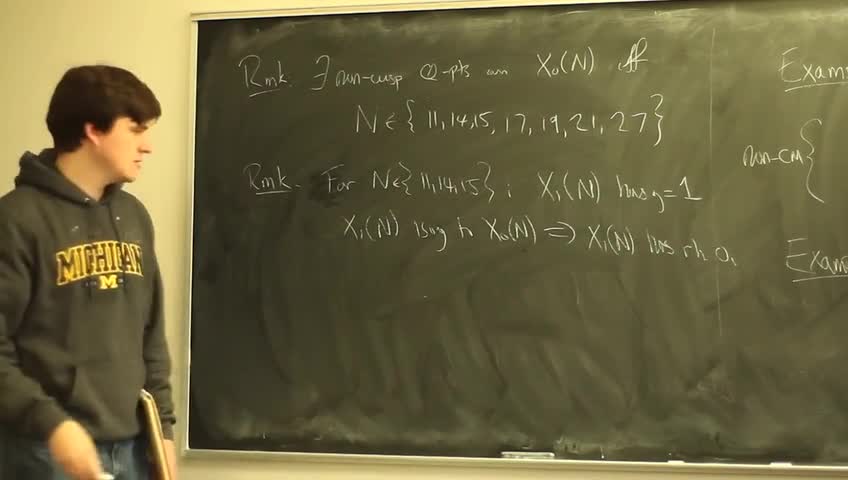 Rmk. ∃ non-cusp Q-pts on X₀(N) iff
N∈{11,14,15,17,19,21,27}
Rmk. For N∈{11,14,15}; X₁(N) has g=1
X₁(N) isog to X₀(N) ⇒ X₁(N) has rk 0.
Exam
non-CM {
Exam
MICHIGAN
M